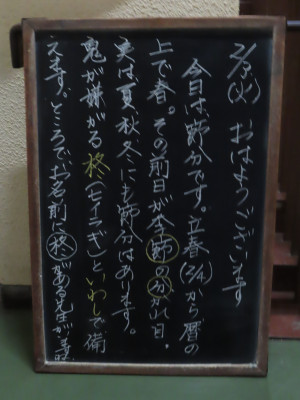 2/3(火) おはようございます
今日は、節分です。立春(2/4)から暦の
上で春。その前日が季節の分かれ目・
実は夏、秋、冬にも節分はあります。
鬼が嫌がる柊(ヒイラギ)といわしで備
えます。ところで、お名前に柊がある先生が